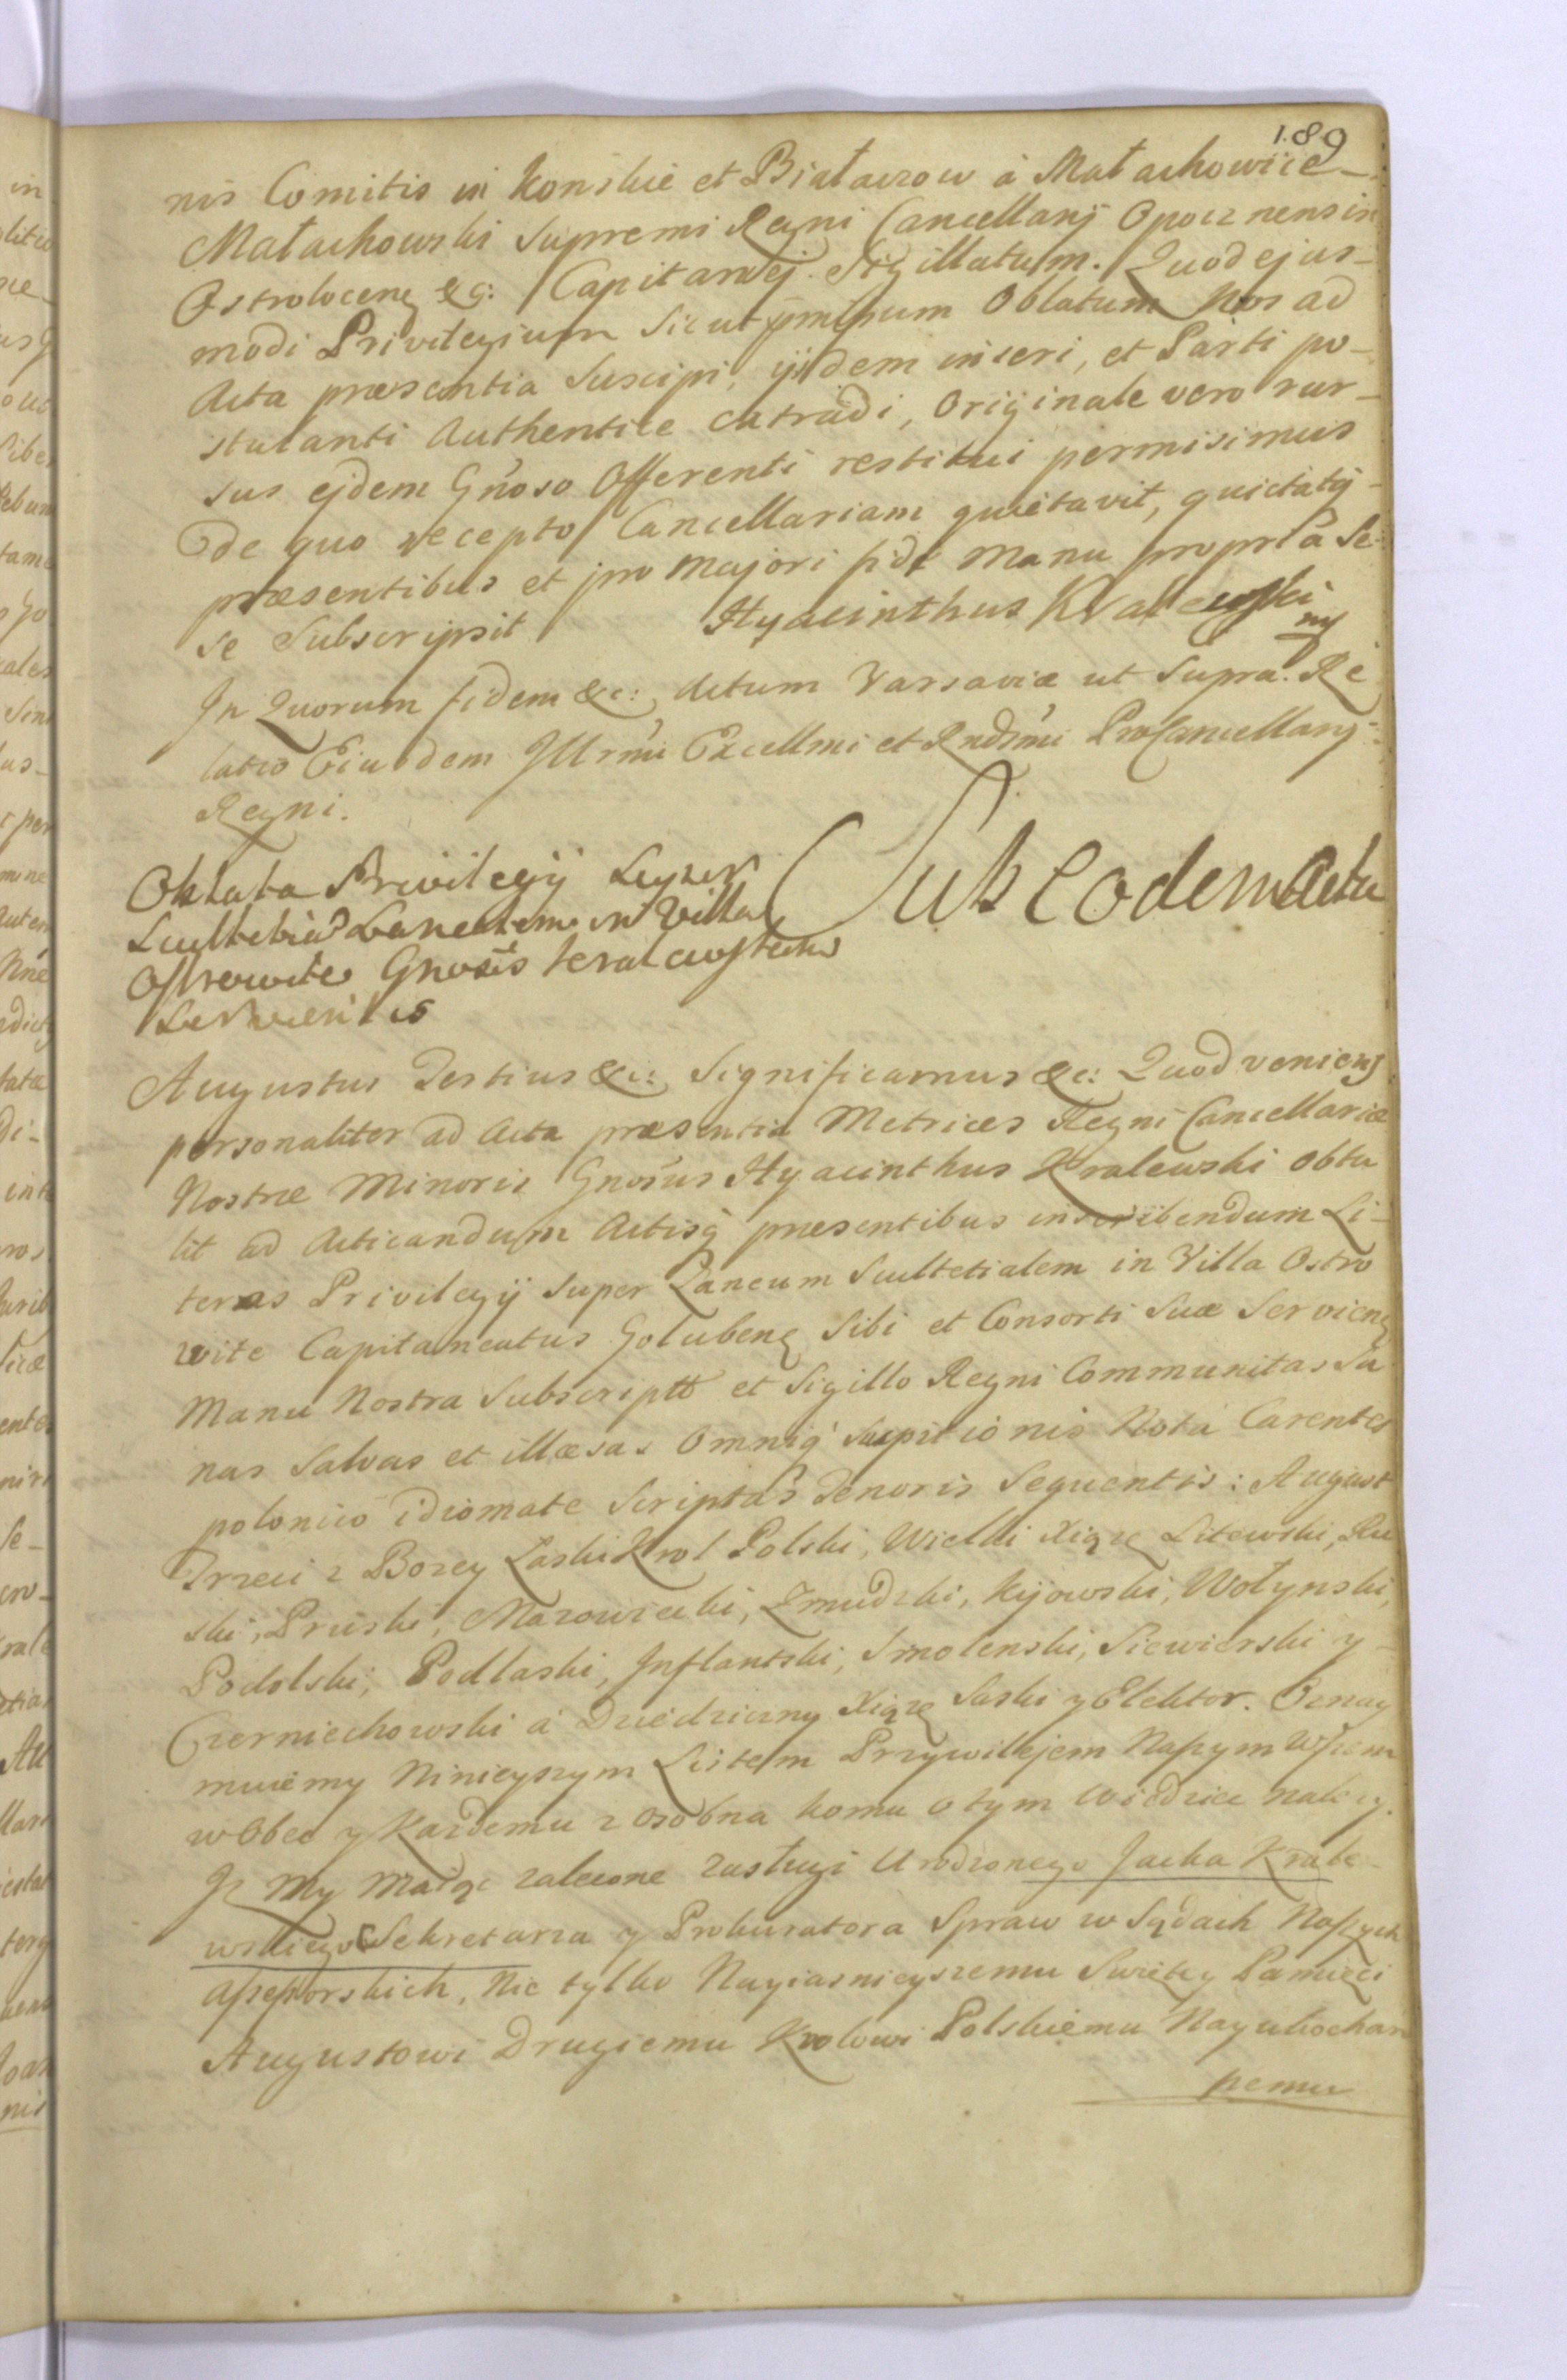 189
nis Comitis in Konskie et Białaczow á Małachowice
Małachowski Supremi Regni Cancellarij Opocznensis
Ostrolocenę &c: Capitanej Sigillatum. Quod ejus-
modi Privilegium Sicut pmissum Oblatum Nos ad
Acta præsentia Suscipi, ijsdem inseri, et Parti po-
stulanti Authentice extradi, Originale vero rur-
sus ejdem Gnoso Offerenti restitui permisimus
de quo recepto Cancellariam quietavit, quietatq
præsentibus et pro majori fide Manu propria Se-
se Subscripsit Hyacinthus Kralewski
mp
In Quorum fidem &c: Actum Varsaviæ ut Supra. Re
latio Eiusdem Illrmi Excellmi et Rndmi ProCancellarij
Regni.
Oblata Privilegij Super
Scultetia Laneum in Villa
Ostrowite Gnosis Kralewskie
Servientis
Sub Eodem Actu
Augustus Tertius &c: Significamus &c: Quod veniens
personaliter ad Acta præsentia Metrices Regni Cancellariæ
Nostræ Minoris Gnosus Hyacinthus Kralewski obtu
lit ad Acticandum Actisq præsentibus inscribendum Li-
teras Privilegij Super Laneum Scultetialem in Villa Ostro
wite Capitaneatus Golubenę Sibi et Consorti Suæ Servienę
Manu Nostra Subscriptt et Sigillo Regni Communitas Sa
nas Salvas et illæsas Omniq Suspitionis Nota Carentes
polonico idiomate Scriptas Tenoris Sequentis: August
Trzeci z Bozey Łaski Krol Polski, Wielki Xiąze Litewski, Ru
ski, Pruski, Mazowiecki, Zmudzki, Kijowski, Wołynski,
Podolski, Podlaski, Inflantski, Smolenski, Siewierski y
Czerniechowski á Dziedziczny Xiąze Saski y Elektor. Oznay
muiemy Ninieyszym Listem Przywilejem Naszym Wszem
w Obec y Kazdemu z osobna komu o tym wiedziec nalezy.
Iz My Maiąc zalecone zasługi Urodzonego Jacka Krale-
wskiego Sekretarza y Prokuratora Spraw w Sądach Naszych
Assessorskich, Nie tylko Nayiasnieyszemu Swiętey Pamięci
Augustowi Drugiemu Krolowi Polskiemu Nayukochan
szemu